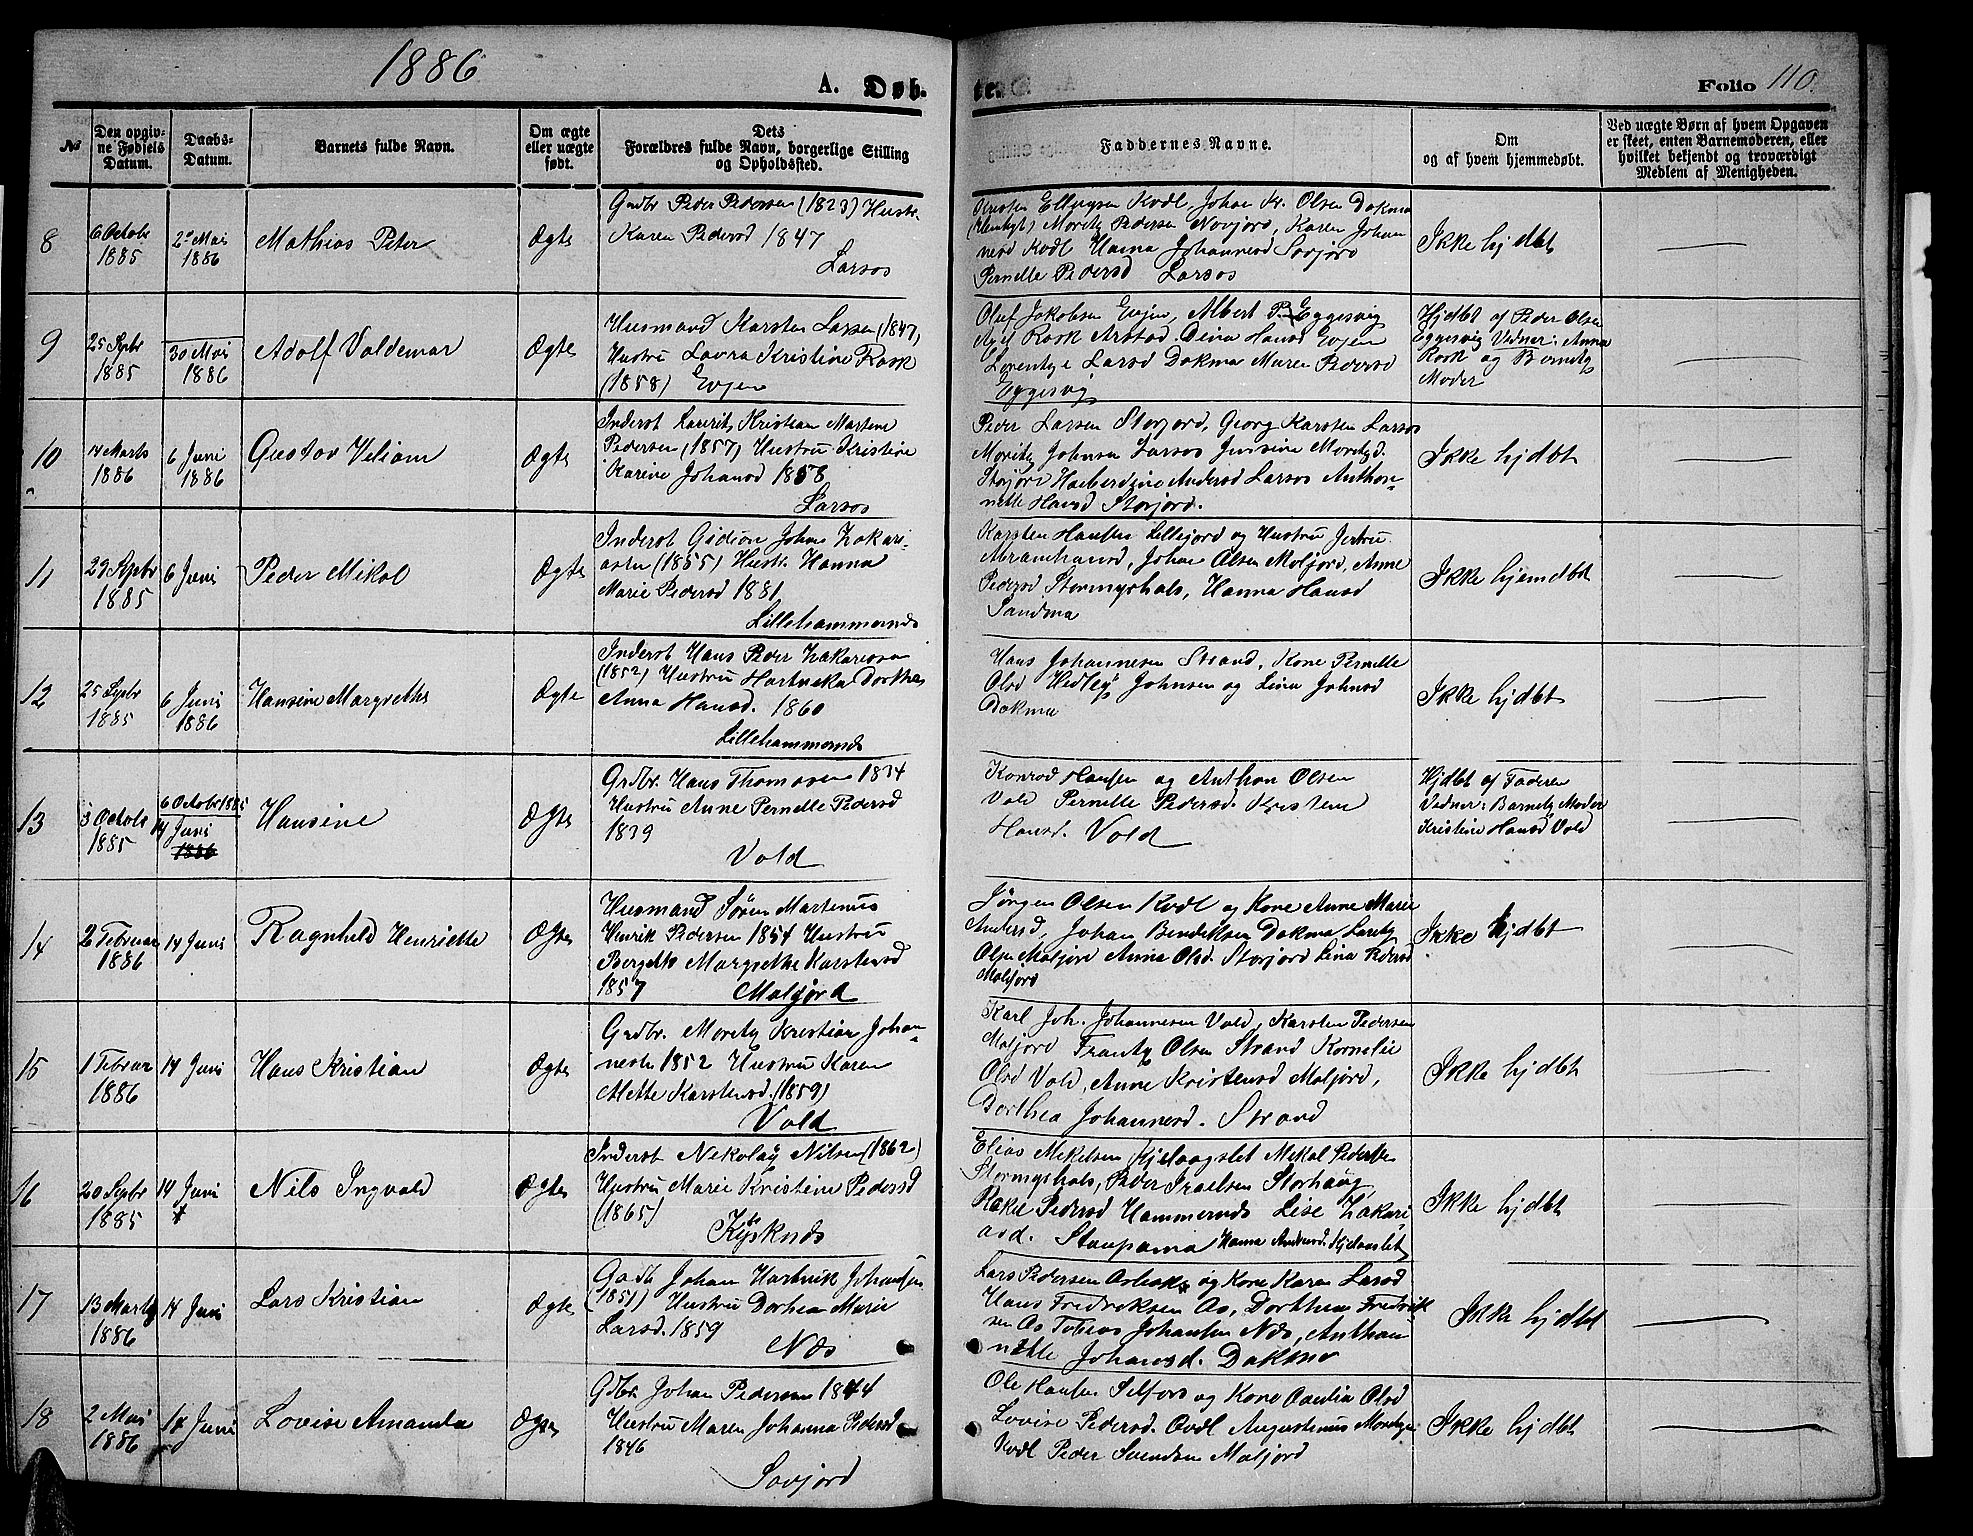 1886
A. Døb-
te.
Folio 110.
No
Den opgiv-
ne Fødsels
Datum.
Daabs-
Datum.
Barnets fulde Navn.
Om ægte
eller uægte
født.
Dets
Forældres fulde Navn, borgerlige Stilling
og Opholdssted.
Faddernes Navne.
Om
og af hvem hjemmedøbt.
Ved uægte Børn af hvem Opgaven
er skeet, enten Barnemoderen, eller
hvilket bekjendt og troværdigt
Medlem af Menigheden.
8
6 Octobr
1885
2den Mai
1886
Mathias Peter
Ægte
Grdbr Peder Pedersen (1823) Hustr.
Karen Pedersd 1847
Larsos
Kristen Ellingsen Kvdl, Johan Kr. Olsen Dokmo
Moritz Pedersen Novjord, Karen Johan
nesd Kvdl Hanna Johannesd Sovjord
Pernelle Pedersd Larsos
Ikke hjdbt
9
25 Spbr
1885
30 Mai
1886
Adolf Valdemar
Ægte
Husmand Karsten Larsen (1847,
Hustru Lavra Kristine Rosk
(1858) Evjen
Oluf Jakobsen Evjen, Albert P. Eggesvig
Rosk Arstad. Dina Hansd Evjen
Lorentze Larsd Dokmo Maren Pedersd
Eggesvig
Hjdbt af Peder Olsen
Eggesvig Vidner: Anna
Rosk og Barnets
Moder
10
14 Marts
1886
6 Juni
1886
Gustav Veliam
Ægte
Inderst Lavrits Kristian Martin
Pedersen (1857) Hustru Kristine
Karine Johansd 1858
Larsos
Peder Larsen Storjord, Georg Karsten Larsos
Moritz Johnsen Larsos Jensine Moritzd.
Storjord Haebersine Andersd Larsos Anthon-
nette Hansd Storjord.
Ikke hjdbt
11
29 Spbr
1885
6 Juni
Peder Mikal
Ægte
Inderst Gidion Johan Zakari-
asen (1855) Hustr. Hanna
Marie Pedersd 1881
Lillehammernds
Karsten Hansen Lillejord og Hustru Jertru
Abramhamsd, Johan Olsen Molfjord, Anne
Pedersd Stormyrhals, Hanna Hansd
Sandmo
Ikke hjemdbt
12
25 Spbr
1885
6 Juni
1886
Hansine Margrethe
Ægte
Inderst Hans Peder Zakariasen
(1852) Hustru Hartvika Dorthea
Anna Hansd. 1860
Lillehammernds
Hans Johannesen Strand, Kone Pernelle
Olsd Hedley Johnsen og Lina Johnsd
Dokmo
Ikke hjdbt
13
3 Octobr
1885
6 Octobr 1885
14 Juni
1886
Hansine
Ægte
Grdbr. Hans Thomasen 1834
Hustru Anne Pernelle Pedersd
1839
Vold
Konrad Hansen og Anthon Olsen
Vold Pernelle Pedersd. Kristene
Hansd. Vold
Hjdbt af Faderen
Vedner: Barnets Moder
Kristine Hansd Vold
14
2 Februar
1886
14 Juni
Ragnhild Henriette
Ægte
Husmand Søren Martenus
Henrik Pedersen 1854 Hustru
Bergette Margrethe Karstensd
1857 Molfjord
Jørgen Olsen Kvdl og Kone Anne Marie
Andersd, Johan Bendiksen Dokmo Larits
Olsen Molfjord Anna Olsd. Storjord Lina Pedersd
Molfjord
Ikke hjdbt
15
1 Februar
1886
14 Juni
Hans Kristian
Ægte
Grdbr. Moritz Kristian Johan-
nesen 1852 Hustru Karen
Mette Karstensd. (1859)
Vold
Karl Joh. Johannesen Vold, Karsten Pedersen
Molfjord Frantz Olsen Strand Kornelie
Olsd Vold, Anne Kristensd Molfjord,
Dorthea Johannesd. Strand
Ikke hjdbt
16
20 Spbr
1885
14 Juni
Nils Ingvald
Ægte
Inderst Nekolay Nilsen (1862)
Hustru Marie Kristine Pedersd
(1865)
Elias Mikelsen Kjelaagslet Mekal Pedersen
Stormyrhals, Peder Israelsen Storhaug
Rakel Pedersd Hammernds Lise Zakari-
asd. Staupamo Hanna Andersd. Kjelaaslet
Ikke hjdbt
17
13 Marts
1886
14 Juni
Lars Kristian
Ægte
Grdb Johan Hartvik Johansen
(1851) Hustru Dorhea Marie
Larsd. 1859
Nds
Lars Pedersen og Kone Karen Larsd
Hans Fredriksen Os, Dorthea Fredrik
sen Os Tobias Johansen Nds, Anthon-
nette Johansd. Dokmo
Ikke hjdbt
18
2 Mai
1886
14 Juni
Lovise Amanda
Ægte
Gdbr Johan Pedersen 1844
Hustru Maren Johanna Pedersd
1846
Sovjord
Ole Hansen Selfors og Kone Olsd
Lovise Pedersd. Kvdl Augustinus Moritzsen
Kvdl Peder Svendsen Molfjord
Ikke hjdbt